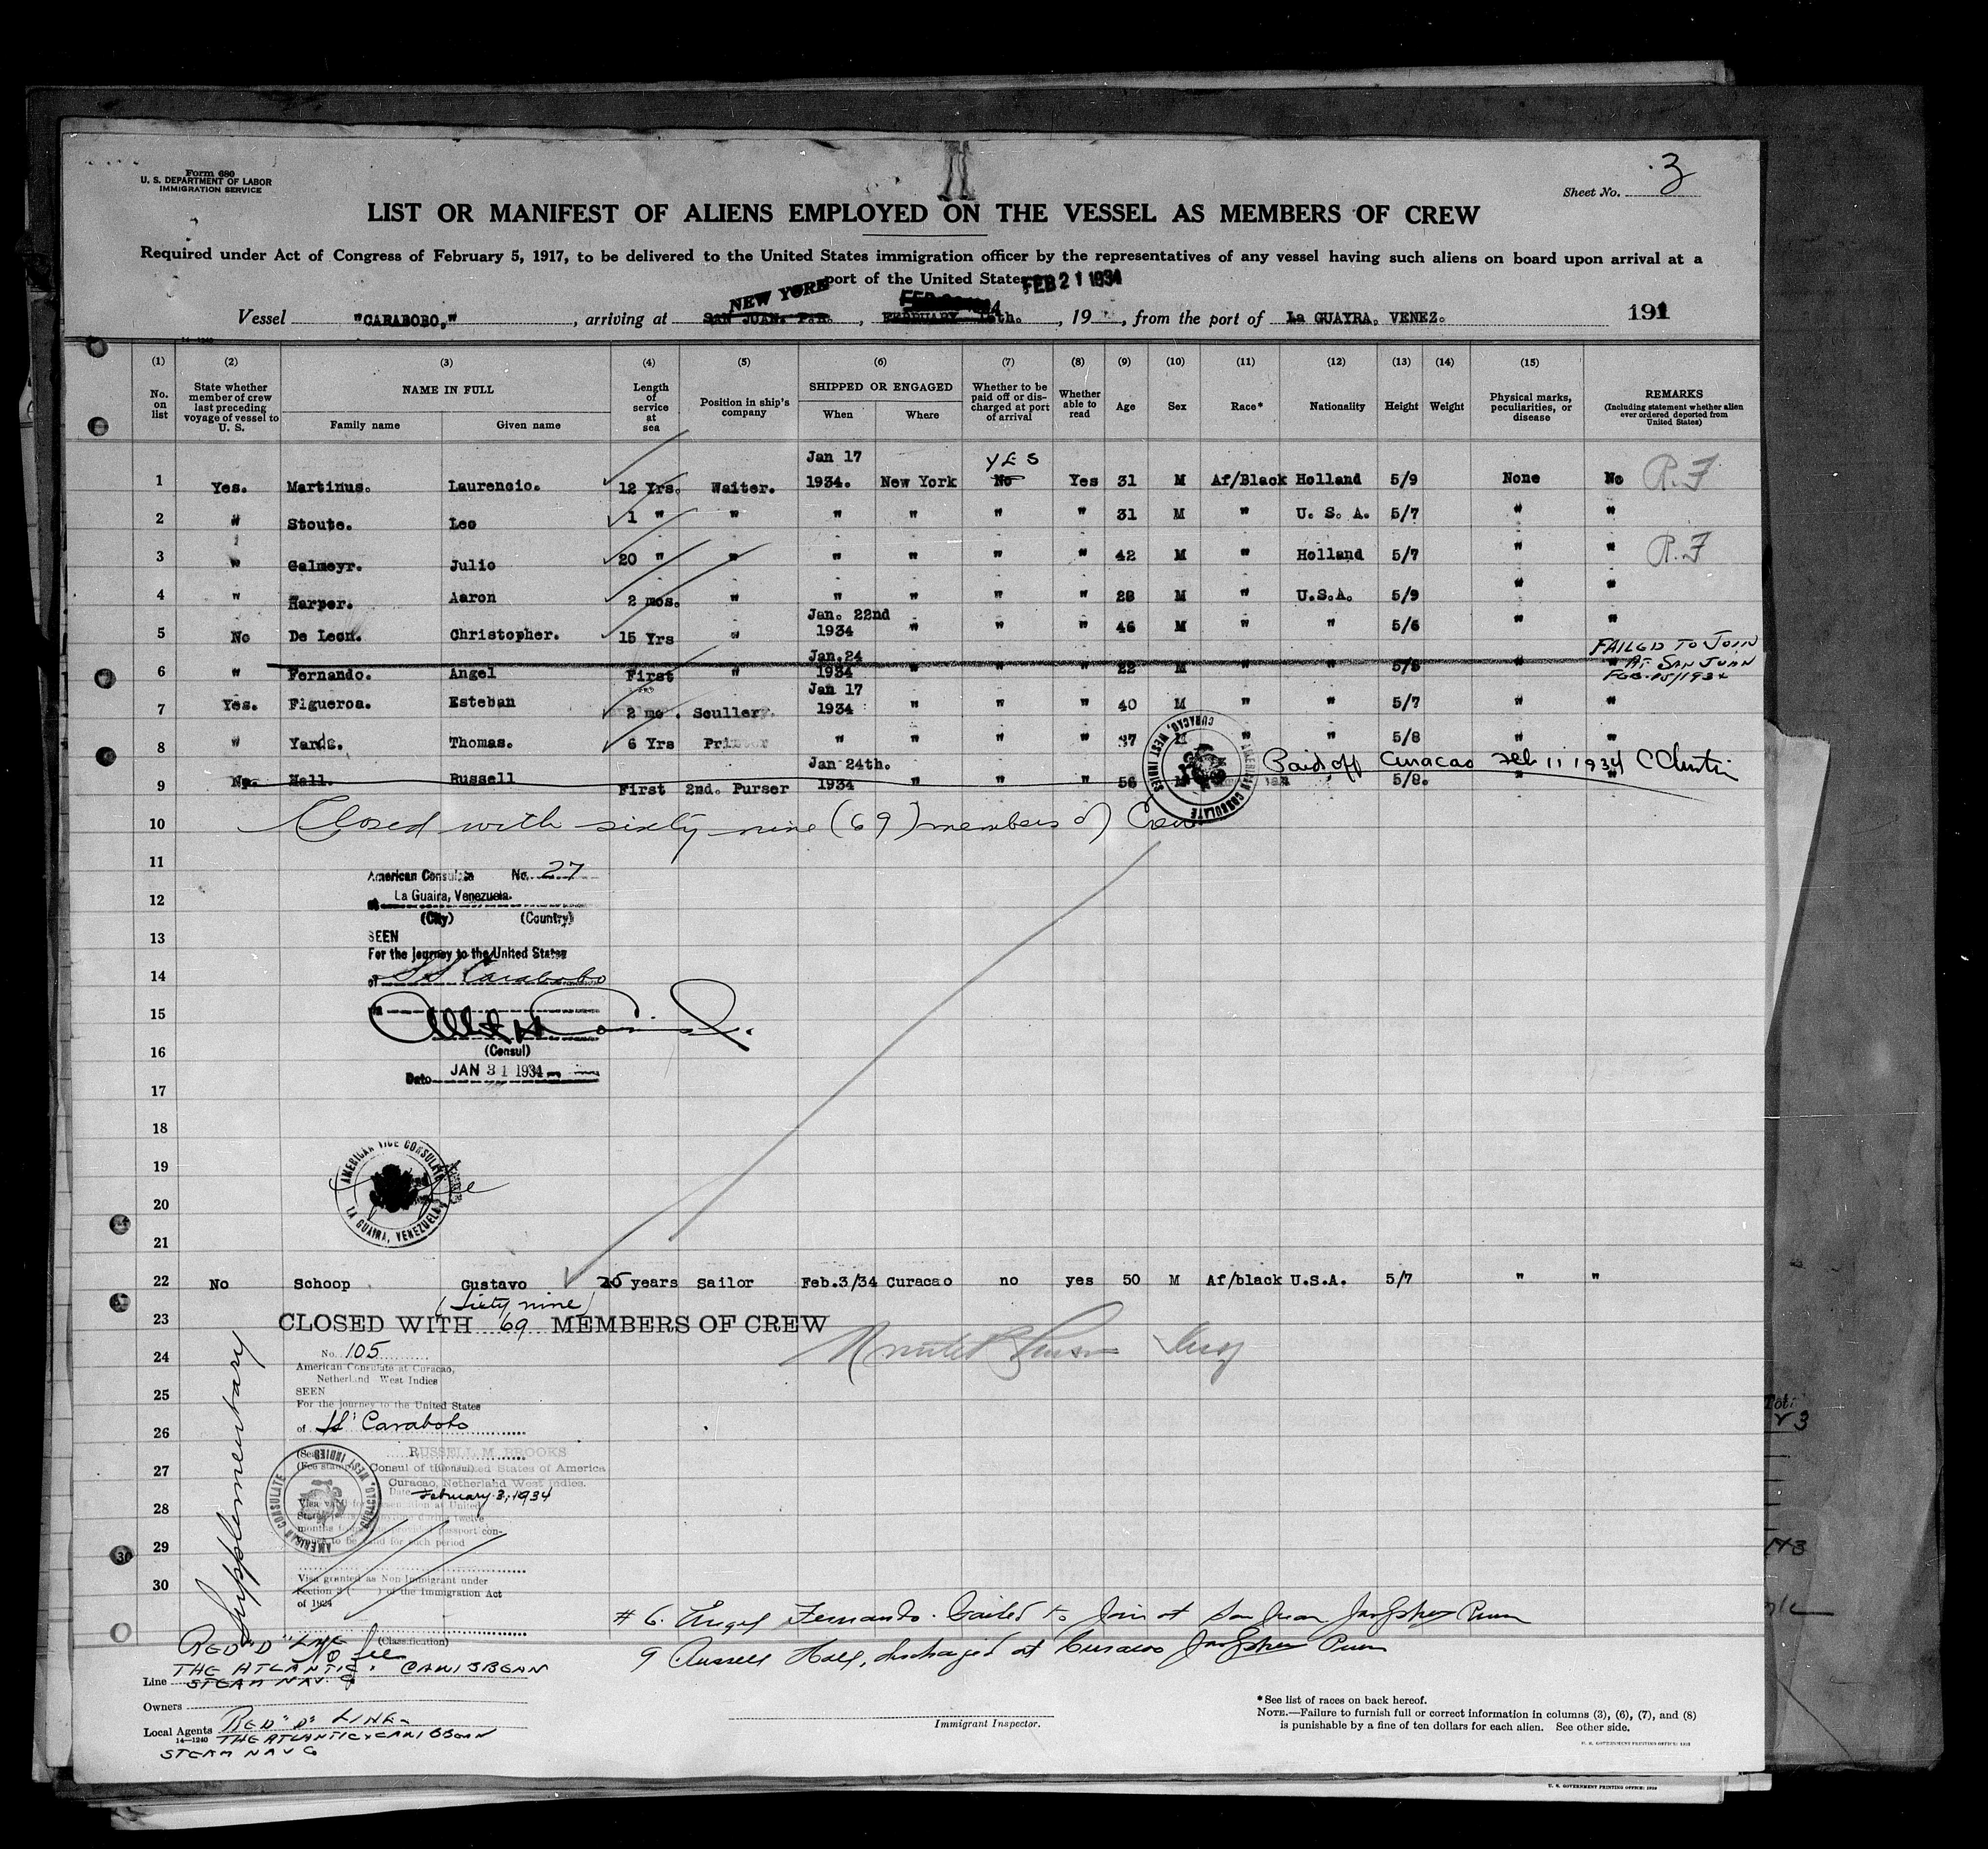 Form 680
U. S. DEPARTMENT OF LABOR
IMMIGRATION SERVICE
Sheet No. 3
LIST OR MANIFEST OF ALIENS EMPLOYED ON THE VESSEL AS MEMBERS OF CREW
Required under Act of Congress of February 5, 1917, to be delivered to the United States immigration officer by the representatives of any vessel having such aliens on board upon arrival at a
port of the United States
NEW YORK FEB 21 1934
Vessel "CARABOBO," , arriving at SAN JUAN. P.R. , FEBRUARY th. , 19 , from the port of La GUAYRA, VENEZ. 191
14-1240
(1) (2) (3) (4) (5) (6) (7) (8) (9) (10) (11) (12) (13) (14) (15)
No. on list State whether member of crew last preceding voyage of vessel to U. S. NAME IN FULL Family name Given name Length of service at sea Position in ship's company SHIPPED OR ENGAGED When Where Whether to be paid off or discharged at port of arrival Whether able to read Age Sex Race* Nationality Height Weight Physical marks, peculiarities, or disease REMARKS (Including statement whether alien ever ordered deported from United States)
Jan 17 YES
1 Yes. Martinus. Laurencio. 12 Yrs. Waiter. 1934. New York No Yes 31 M Af/Black Holland 5/9 None No R.F
2 " Stoute. Leo 1 " " " " " " 31 M " U. S. A. 5/7 " "
3 " Galmeyr. Julio 20 " " " " " " 42 M " Holland 5/7 " " R.F
4 " Harper. Aaron 2 mos. " " " " " 28 M " U.S.A. 5/9 " "
Jan. 22nd
5 No De Leon. Christopher. 15 Yrs " 1934 " " " 46 M " " 5/6 " "
Jan.24 FAILED TO JOIN
6 " Fernando. Angel First " 1934 " " " 22 M " " 5/8 " " AT SAN JUAN
Jan 17 FEB.15/1934
7 Yes. Figueroa. Esteban 2 mo. Scullery. 1934 " " " 40 M " " 5/7 " "
8 " Yarde. Thomas. 6 Yrs Printer " " " " 37 M " " 5/8
Jan 24th. Paid off Curacao Feb 11 1934
9 No. Hall. Russell First 2nd. Purser 1934 " " " 56 M 5/8. " "
AMERICAN CONSULATE CURACAO, WEST INDIES
10 Closed with sixty nine (69) members of Crew
11
American Consulate No. 27
12
at La Guaira, Venezuela.
(City) (Country)
13 SEEN
For the journey to the United States
14 of SS Carabobo
15
16 (Consul)
Date JAN 31 1934
17
18
AMERICAN VICE CONSULATE
19
20
LA GUAIRA, VENEZUELA
21
22 No Schoop Gustavo 25 years Sailor Feb.3/34 Curacao no yes 50 M Af/black U.S.A. 5/7 " "
(Sixty nine)
23 CLOSED WITH 69 MEMBERS OF CREW
24 No. 105
American Consulate at Curacao,
Netherland West Indies
25 SEEN
For the journey to the United States
26 of SS Carabobo
RUSSELL M. BROOKS
27 Consul of the United States of America
Curacao, Netherland West Indies.
Date February 3, 1934
28
AMERICAN CONSULATE CURACAO, WEST INDIES
29
Visa granted as Non Immigrant under
30 Section 3 ( ) of the Immigration Act
of 1924
Supplementary
(Classification)
No fee
# 6. Angel Fernando. Failed to Join at San Juan
9 Russell Hall, discharged at Curacao
RED "D" LINE
THE ATLANTIC & CARIBBEAN
Line STEAM NAV. Co
Owners
Local Agents RED "D" LINE
14-1240 THE ATLANTIC & CARIBBEAN
STEAM NAV Co
Immigrant Inspector.
*See list of races on back hereof.
NOTE.—Failure to furnish full or correct information in columns (3), (6), (7), and (8)
is punishable by a fine of ten dollars for each alien. See other side.
U. S. GOVERNMENT PRINTING OFFICE
U. S. GOVERNMENT PRINTING OFFICE